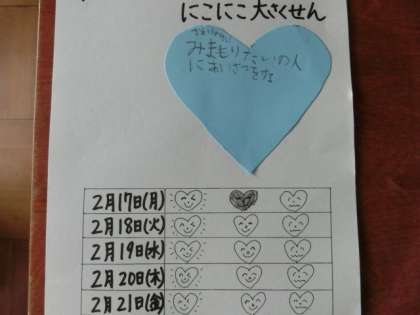 にこにこ大さくせん
みまもりたいの人
にあいさつをする
2月17日(月)
2月18日(火)
2月19日(水)
2月20日(木)
2月21日(金)